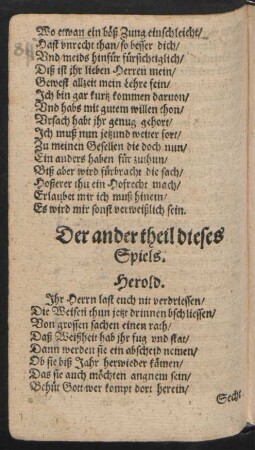 Wo etwan ein böß Zung einschleicht/
Hast vnrecht than/ so besser dich/
Vnd meids hinfür fürsichtiglich/
Diß ist jhr lieben Herren mein/
Gewest allzeit mein Lehre fein/
Ich bin gar kurtz kommen daruon/
Vnd habs mit gutem willen thon/
Vrsach habt jhr genug gehört/
Ich muß nun jetzund weiter fort/
Zu meinen Gesellen die doch nun/
Ein anders haben für zuthun/
Biß aber wird fürbracht die sach/
Hofierer thu ein Hofrecht mach/
Erlaubet mir ich muß hinein/
Es wird mir sonst verweißlich sein.
Der ander theil dieses
Spiels.
Herold.
Ihr Herrn last euch nit verdriessen/
Die Weisen thun jetzt drinnen bschliessen/
Von grossen sachen einen rath/
Daß Weißheit hab jhr fug vnd stat/
Dann werden sie ein abscheid nemen/
Ob sie biß Jahr herwieder kämen/
Das sie auch möchten angnem sein/
Behüt Gott wer kompt dort herein/
Sechs